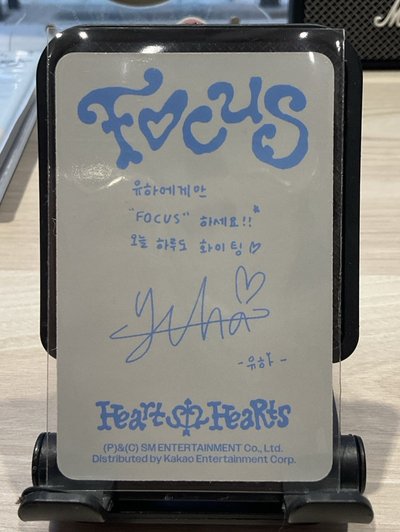 FOCUS
유하에게만
"FOCUS" 하세요!!
오늘 하루도 화이팅♡
Yuha♡
-유하-
Heart2Hearts
(P)&(C) SM ENTERTAINMENT Co., Ltd.
Distributed by Kakao Entertainment Corp.